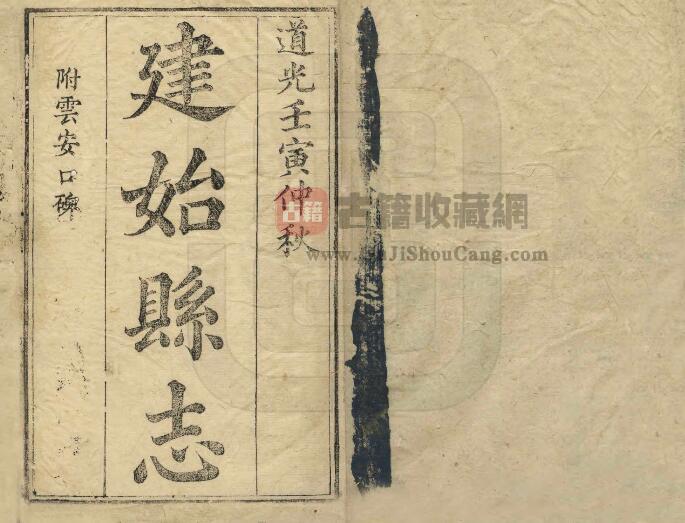 道光壬寅仲秋
建始縣志
附雲安口碑
古籍
古籍收藏網
www.GuJiShouCang.com